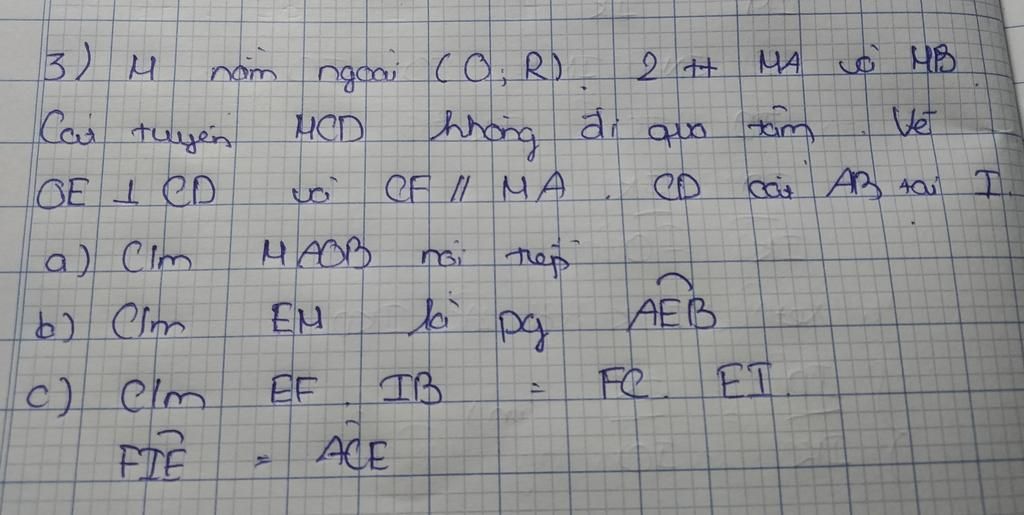 3) M nằm ngoài (O; R). 2 tt MA và MB
Cát tuyến MCD không đi qua tâm. Vẽ
OE ⊥ CD và CF // MA. CD cắt AB tại I.
a) C/m MAOB nội tiếp
b) C/m EM là pg AEB
c) C/m EF. IB = FC. EI.
FIE = ACE